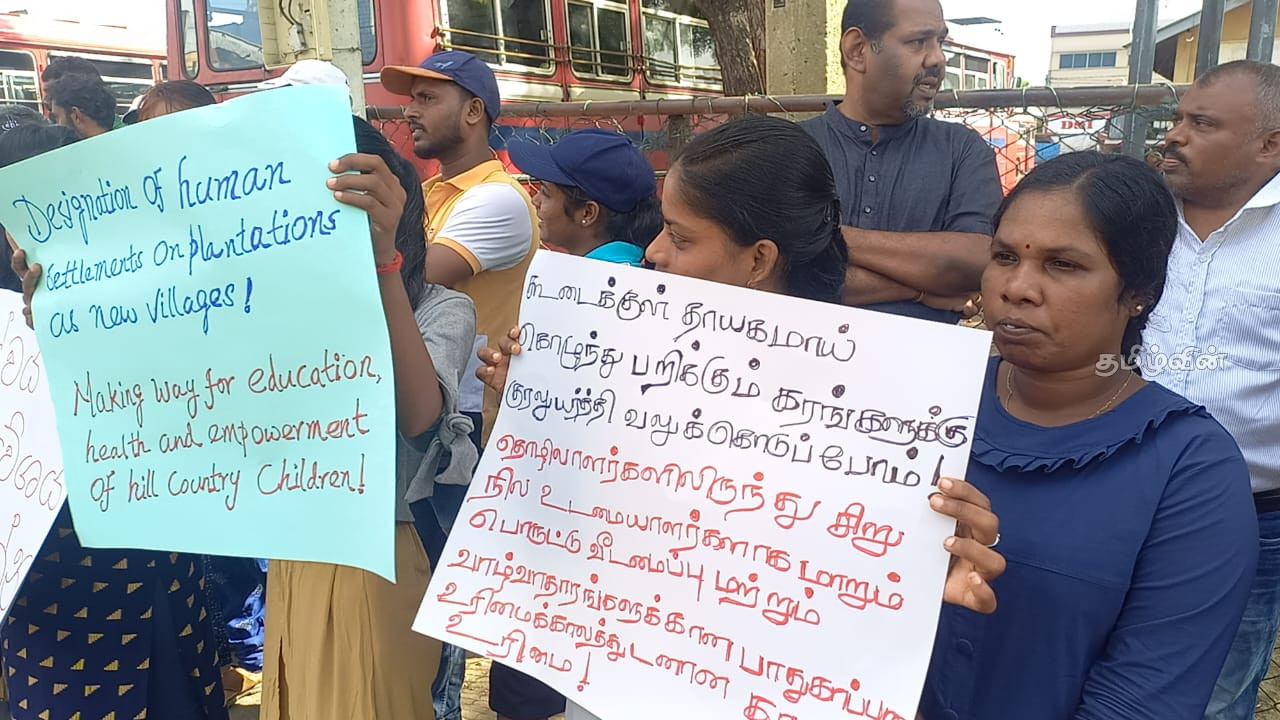 Designation Of human
Settlements On plantations
as new villages!
Making way for education,
health and empowerment
of hill Country Children!
கூடைக்குள் தாயகமாய்
கொழுந்து பறிக்கும் கரங்களுக்கு
குரலுயர்த்தி வலுக்கொடுப்போம்!
தொழிலாளர்களிலிருந்து சிறு
நில உடமையாளர்களாக மாறும்
பொருட்டு வீடமைப்பு மற்றும்
வாழ்வாதாரங்களுக்கான பாதுகாப்பான
உரிமைக்காலத்துடனான
உரிமை!
தமிழ்வின்